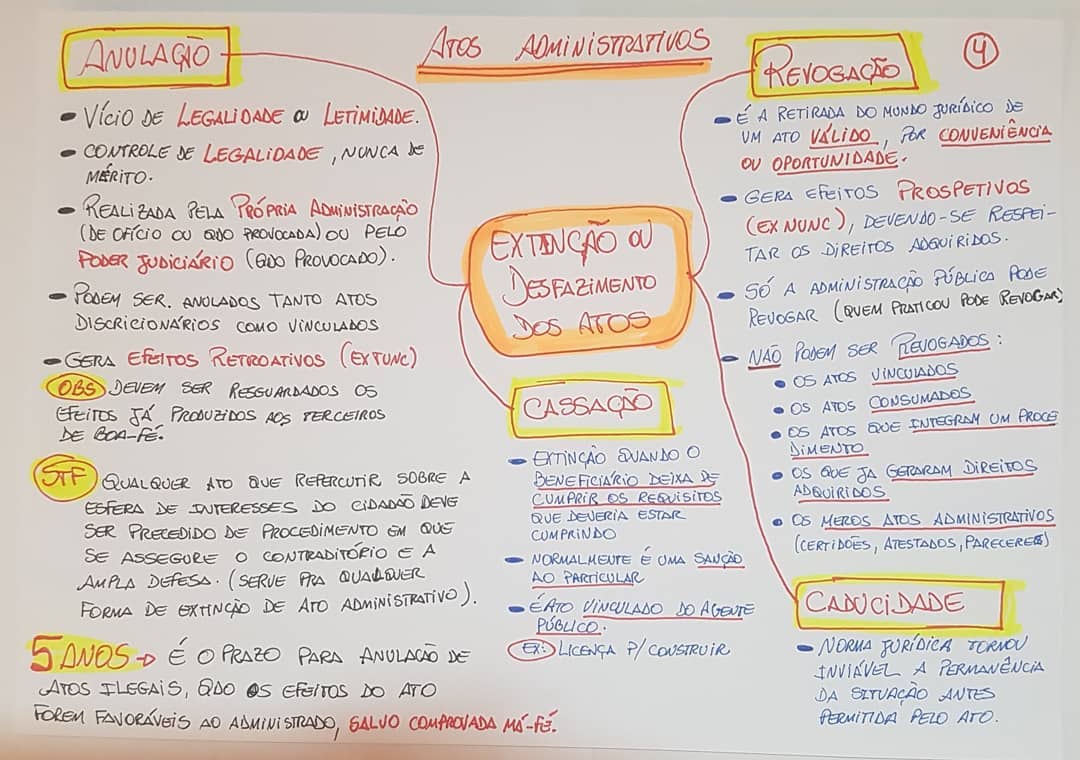 ATOS ADMINISTRATIVOS
4
EXTINÇÃO OU
DESFAZIMENTO
DOS ATOS
ANULAÇÃO
- VÍCIO DE LEGALIDADE OU LETIMIDADE.
- CONTROLE DE LEGALIDADE, NUNCA DE
MÉRITO.
- REALIZADA PELA PRÓPRIA ADMINISTRAÇÃO
(DE OFÍCIO OU QDO PROVOCADA) OU PELO
PODER JUDICIÁRIO (QDO PROVOCADO).
- PODEM SER. ANULADOS TANTO ATOS
DISCRICIONÁRIOS COMO VINCULADOS
- GERA EFEITOS RETROATIVOS (EX TUNC)
OBS DEVEM SER RESGUARDADOS OS
EFEITOS JÁ PRODUZIDOS AOS TERCEIROS
DE BOA-FÉ.
STF QUALQUER ATO QUE REPERCUTIR SOBRE A
ESFERA DE INTERESSES DO CIDADÃO DEVE
SER PRECEDIDO DE PROCEDIMENTO EM QUE
SE ASSEGURE O CONTRADITÓRIO E A
AMPLA DEFESA. (SERVE PRA QUALQUER
FORMA DE EXTINÇÃO DE ATO ADMINISTRATIVO).
5 ANOS → É O PRAZO PARA ANULAÇÃO DE
ATOS ILEGAIS, QDO OS EFEITOS DO ATO
FOREM FAVORÁVEIS AO ADMINISTRADO, SALVO COMPROVADA MÁ-FÉ.
CASSAÇÃO
- EXTINÇÃO QUANDO O
BENEFICIÁRIO DEIXA DE
CUMPRIR OS REQUISITOS
QUE DEVERIA ESTAR
CUMPRINDO
- NORMALMENTE É UMA SANÇÃO
AO PARTICULAR
- É ATO VINCULADO DO AGENTE
PÚBLICO.
EX: LICENÇA P/ CONSTRUIR
REVOGAÇÃO
- É A RETIRADA DO MUNDO JURÍDICO DE
UM ATO VÁLIDO, POR CONVENIÊNCIA
OU OPORTUNIDADE.
- GERA EFEITOS PROSPETIVOS
(EX NUNC), DEVENDO-SE RESPEI-
TAR OS DIREITOS ADQUIRIDOS.
- SÓ A ADMINISTRAÇÃO PÚBLICA PODE
REVOGAR (QUEM PRATICOU PODE REVOGAR)
- NÃO PODEM SER REVOGADOS:
• OS ATOS VINCULADOS
• OS ATOS CONSUMADOS
• OS ATOS QUE INTEGRAM UM PROCE
DIMENTO
• OS QUE JA GERARAM DIREITOS
ADQUIRIDOS
• OS MEROS ATOS ADMINISTRATIVOS
(CERTIDÕES, ATESTADOS, PARECERES)
CADUCIDADE
- NORMA JURÍDICA TORNOU
INVIÁVEL A PERMANÊNCIA
DA SITUAÇÃO ANTES
PERMITIDA PELO ATO.